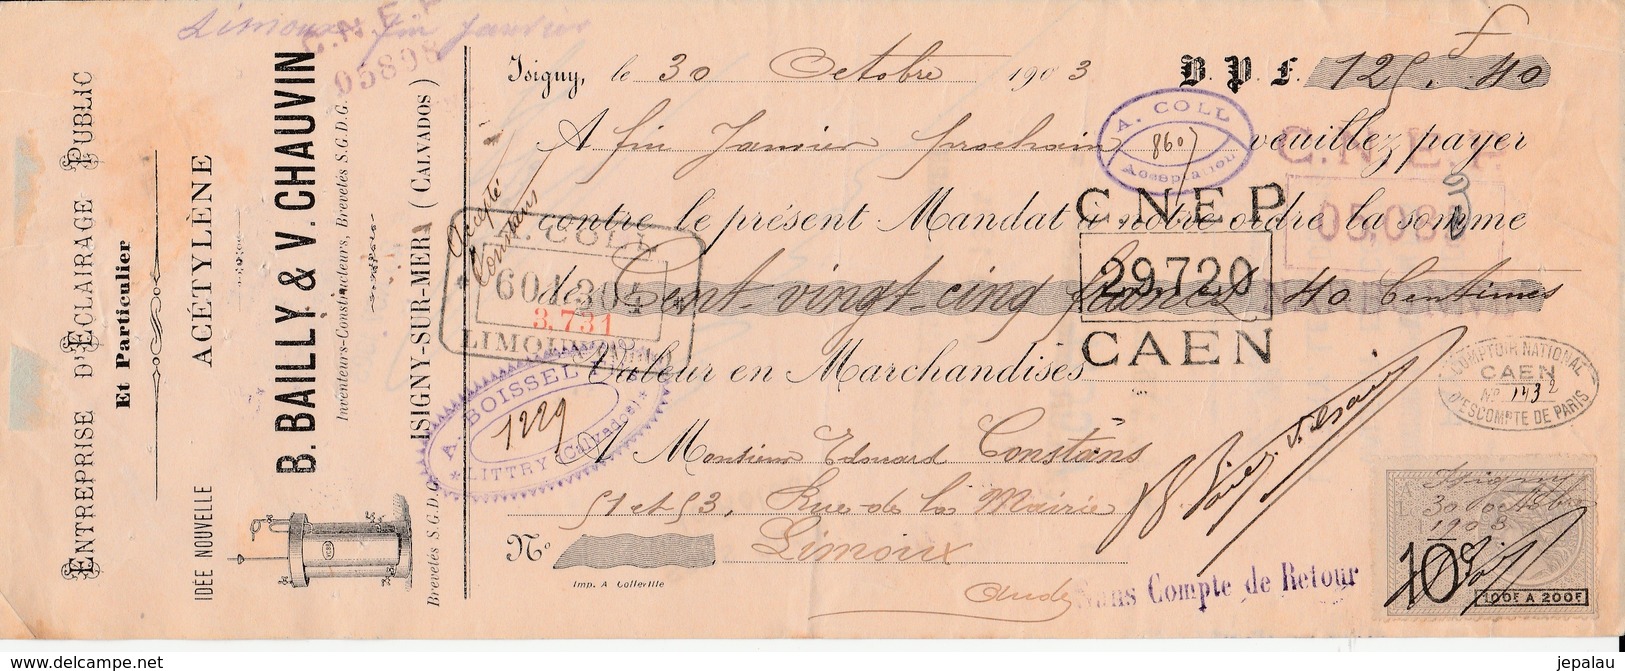 Limoux fin Janvier
C.N.E.P
05898
ENTREPRISE D'ÉCLAIRAGE PUBLIC
Et Particulier
IDÉE NOUVELLE ACÉTYLÈNE
B. BAILLY & V. CHAUVIN
Inventeurs-Constructeurs, Brevetés S.G.D.G.
Brevetés S.G.D.G. ISIGNY-SUR-MER (CALVADOS)
Isigny, le 30 Octobre 1903 B.P.F. 125f.40
A fin Janvier prochain veuillez payer
contre le présent Mandat à notre ordre la somme
de Cent vingt cinq francs 40 Centimes
Valeur en Marchandises
A Monsieur Edouard Constans
51 et 53, Rue de la Mairie
Limoux
Aude
No
Imp. A Colleville
Accepté
Constans
A. COLL
8607
Acceptation
C.N.E.P
29.720
CAEN
C.N.E.P
A. COLL
3.731
LIMOUX
A. BOISSEL
1229
LITTRY (Calvados)
COMPTOIR NATIONAL
CAEN
No 1432
D'ESCOMPTE DE PARIS
Sans Compte de Retour
Isigny
30 octobre
1903
10c
100F A 200F
delcampe.net
jepalau